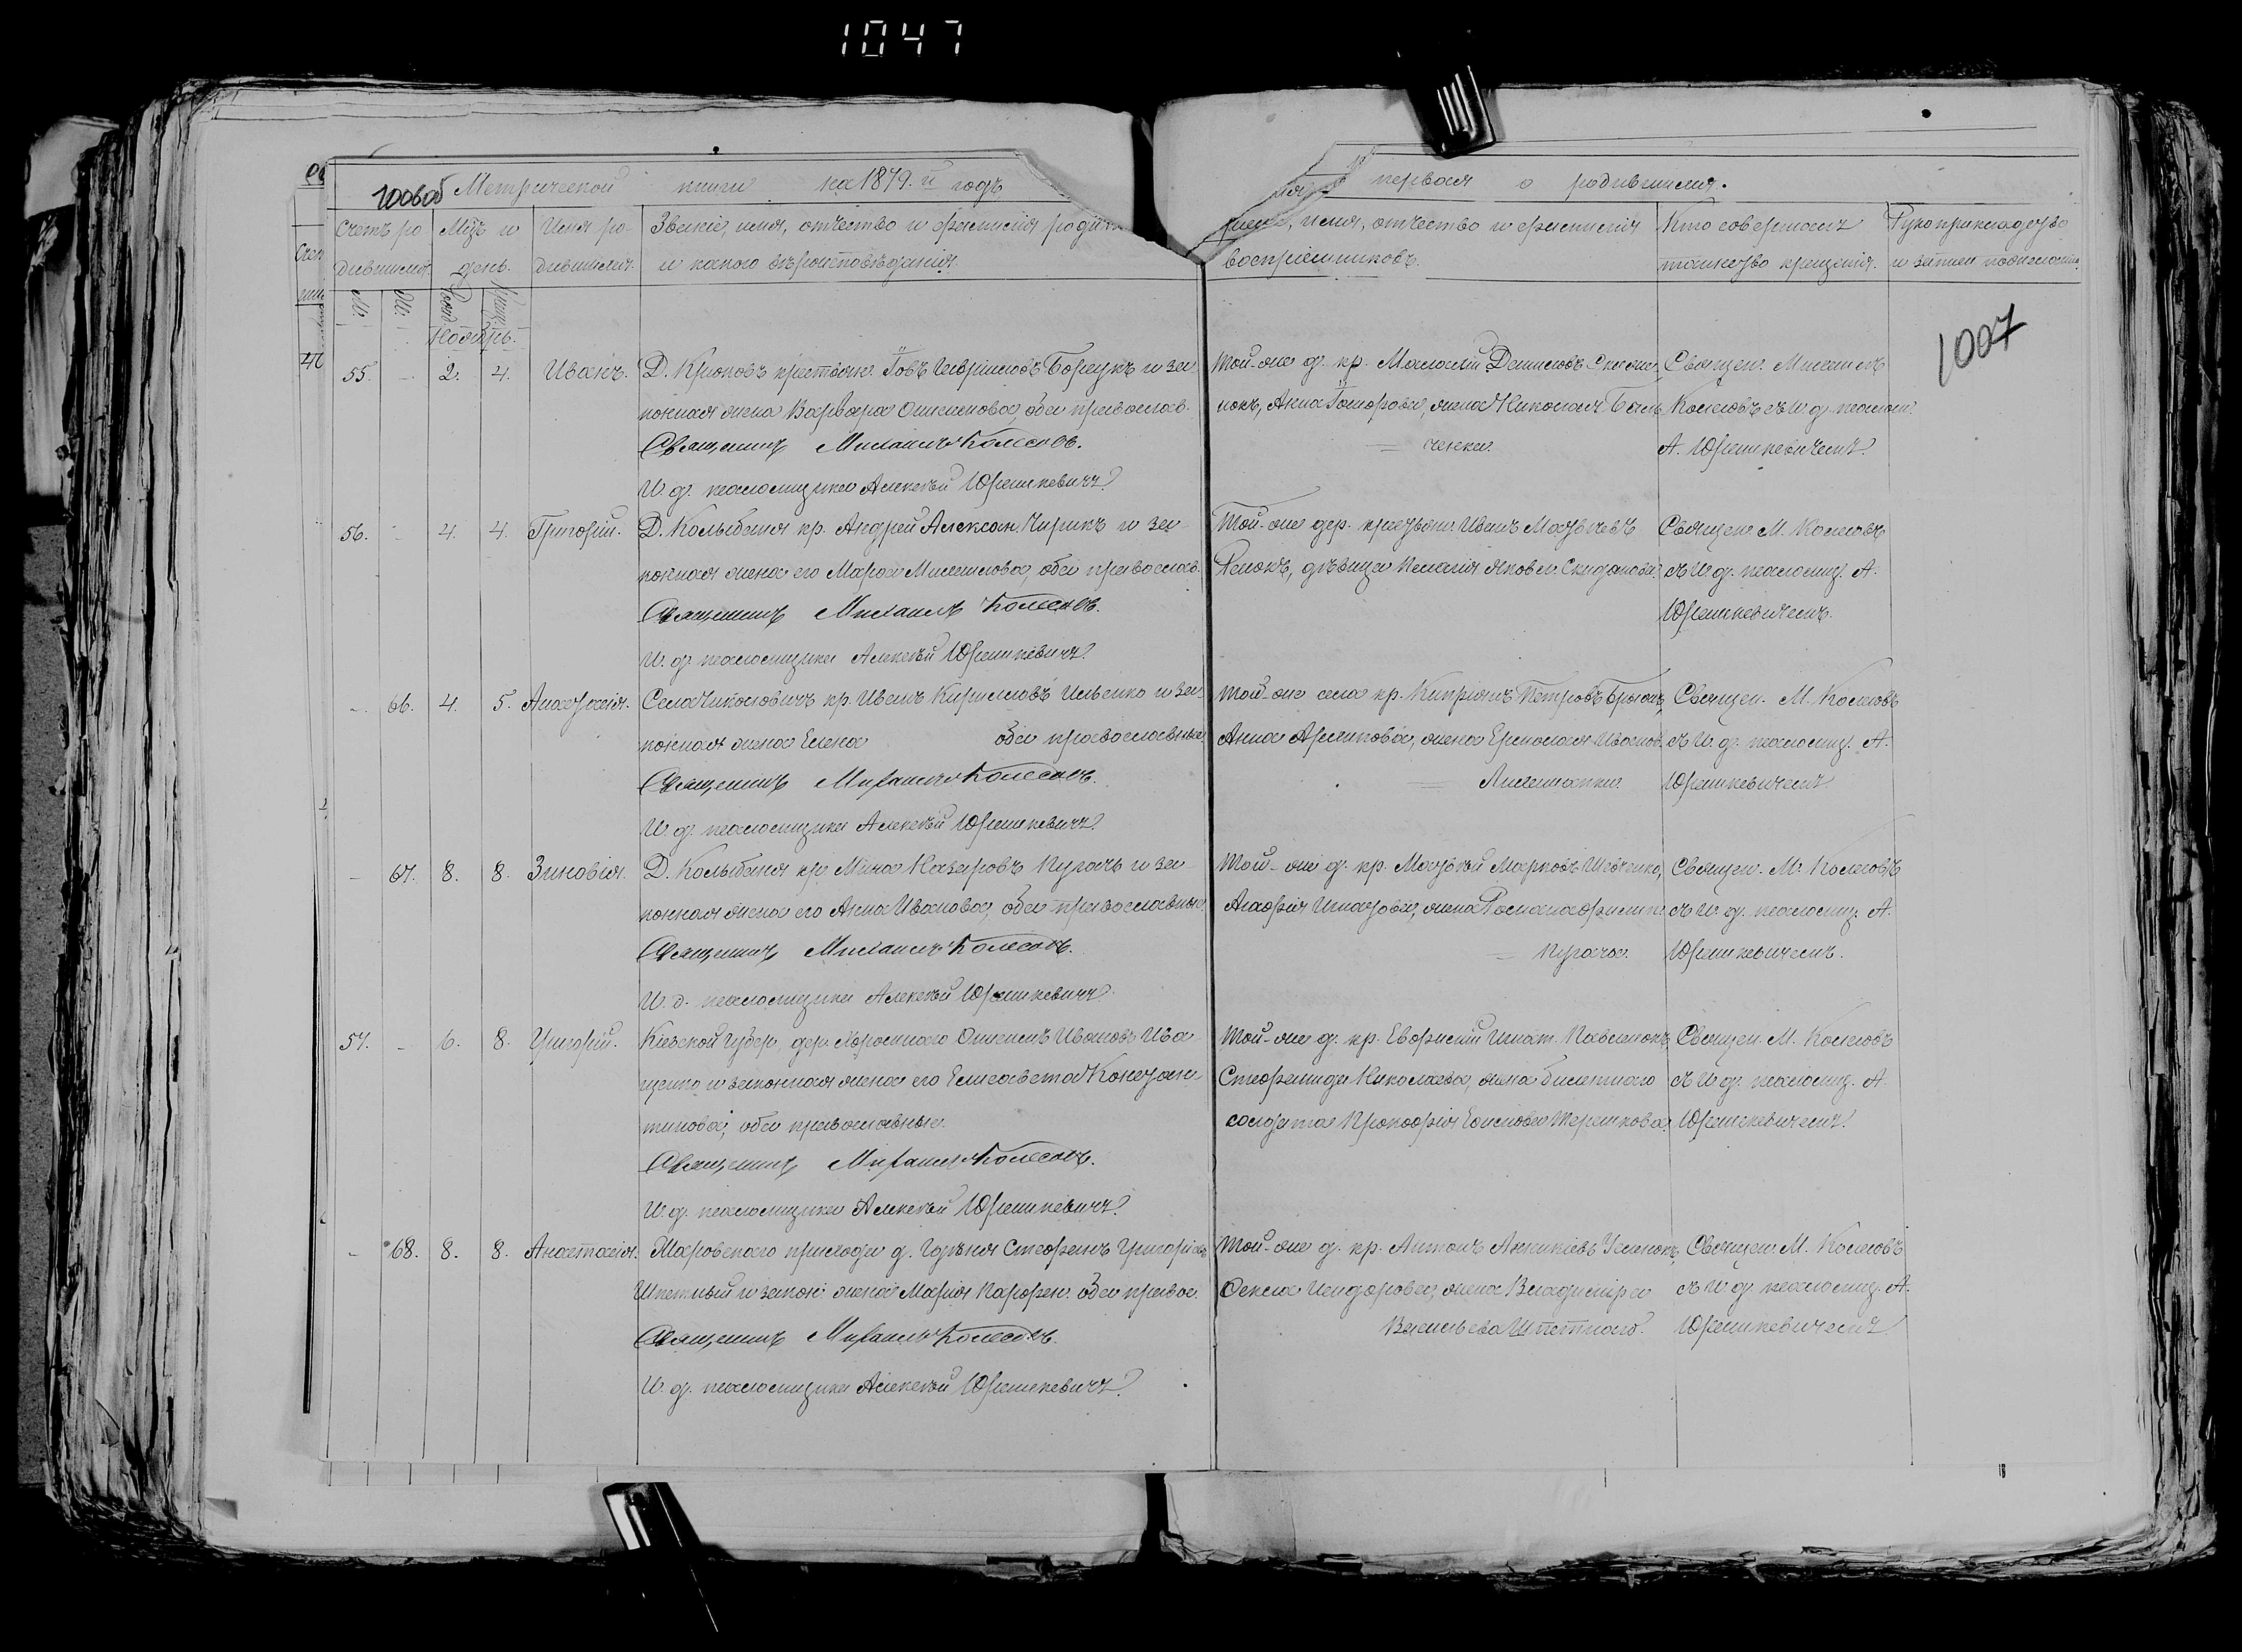 1047
1006об Метрической книги на 1879.й годъ,
первая о родившихся.
1007
Счетъ ро-
дившихся.
М.
Ж.
Мѣс. и
день.
Рожд.
Крещ.
Имя ро-
дившихся.
Званіе, имя, отчество и фамилія родит
и какого вѣроисповѣданія.
имя, отчество и фамилія
воспріемниковъ.
Кто совершалъ
таинство крещенія.
Рукоприкладство
Ноябрь.
55. - 2. 4. Иванъ.
Д. Крюковъ крестьян. Іовъ Гавриловъ Борецкъ и за-
конная жена Варвара, оба православ.
Священникъ Михаилъ Колесовъ.
И. д. псаломщика Алексѣй Юрашкевичъ.
Той-же д. кр.
нокъ, Анна, жена Николая Баль
ченка.
Священ. Михаилъ
Колесовъ съ И. д. псалом.
А. Юрашкевичемъ.
56. - 4. 4. Григорій.
Д. Колыбаня кр. Андрей Алексан. Чирикъ и за-
конная жена его Марѳа Михаилова, оба православ.
Священникъ Михаилъ Колесовъ.
И. д. псаломщика Алексѣй Юрашкевичъ.
Той-же дер. крестьян. Иванъ
дѣвица Пелагія Яковл.
Священ. М. Колесовъ
съ И. д. псаломщ. А.
Юрашкевичемъ.
- 66. 4. 5. Анастасія.
Села кр. Иванъ Кирилловъ Ильенко и за-
конная жена Елена оба православные.
Священникъ Михаилъ Колесовъ.
И. д. псаломщика Алексѣй Юрашкевичъ.
Той-же села кр. Кипріанъ Петровъ
Анна, жена Ермолая Иванов.
Священ. М. Колесовъ
съ И. д. псаломщ. А.
Юрашкевичемъ.
- 67. 8. 8. Зиновія.
Д. Колыбаня кр. Мина Назаровъ Пугачъ и за-
конная жена его Анна Иванова, оба православные.
Священникъ Михаилъ Колесовъ.
И. д. псаломщика Алексѣй Юрашкевичъ.
Той-же д. кр. Матвѣй Марковъ Шевченко,
Агафія Игнатова, жена Романа Филип.
Пугача.
Священ. М. Колесовъ
съ И. д. псаломщ. А.
Юрашкевичемъ.
57. - 6. 8. Григорій.
Кіевской губер. дер. Ивановъ Ива-
щенко и законная жена его Елисавета Констан-
тинова, оба православные.
Священникъ Михаилъ Колесовъ.
И. д. псаломщика Алексѣй Юрашкевичъ.
Той-же д. кр. Евфимій Игнат.
Стефанида Николаева, жена билетнаго
солдата Прокофія Терешкова.
Священ. М. Колесовъ
съ И. д. псаломщ. А.
Юрашкевичемъ.
- 68. 8. 8. Анастасія.
прихода д. Стефанъ Григоріевъ
Шпетный и закон. жена Марія Парфен. оба правос.
Священникъ Михаилъ Колесовъ.
И. д. псаломщика Алексѣй Юрашкевичъ.
Той-же д. кр. Антонъ
Ѳекла Исидорова, жена Владиміра
Васильева Шпетнаго.
Священ. М. Колесовъ
съ И. д. псаломщ. А.
Юрашкевичемъ.